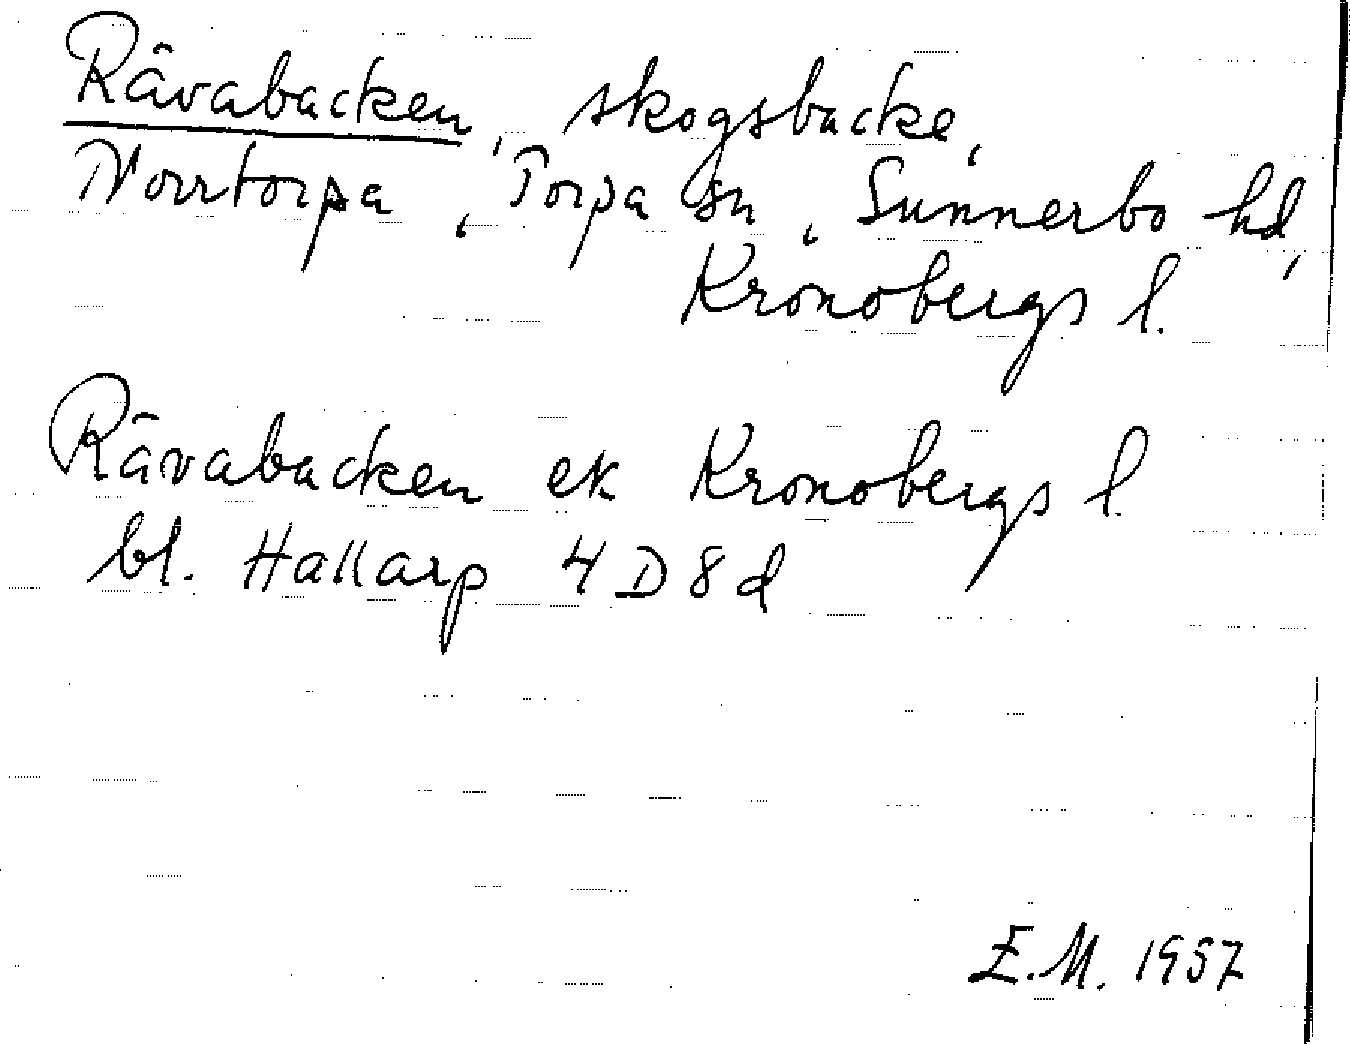 Rävabacken, skogsbacke,
Norrtorpa, Torpa sn, Sunnerbo hd,
Kronobergs l.
Rävabacken ek Kronobergs l.
bl. Hallarp 4 D 8 d
E.M. 1957